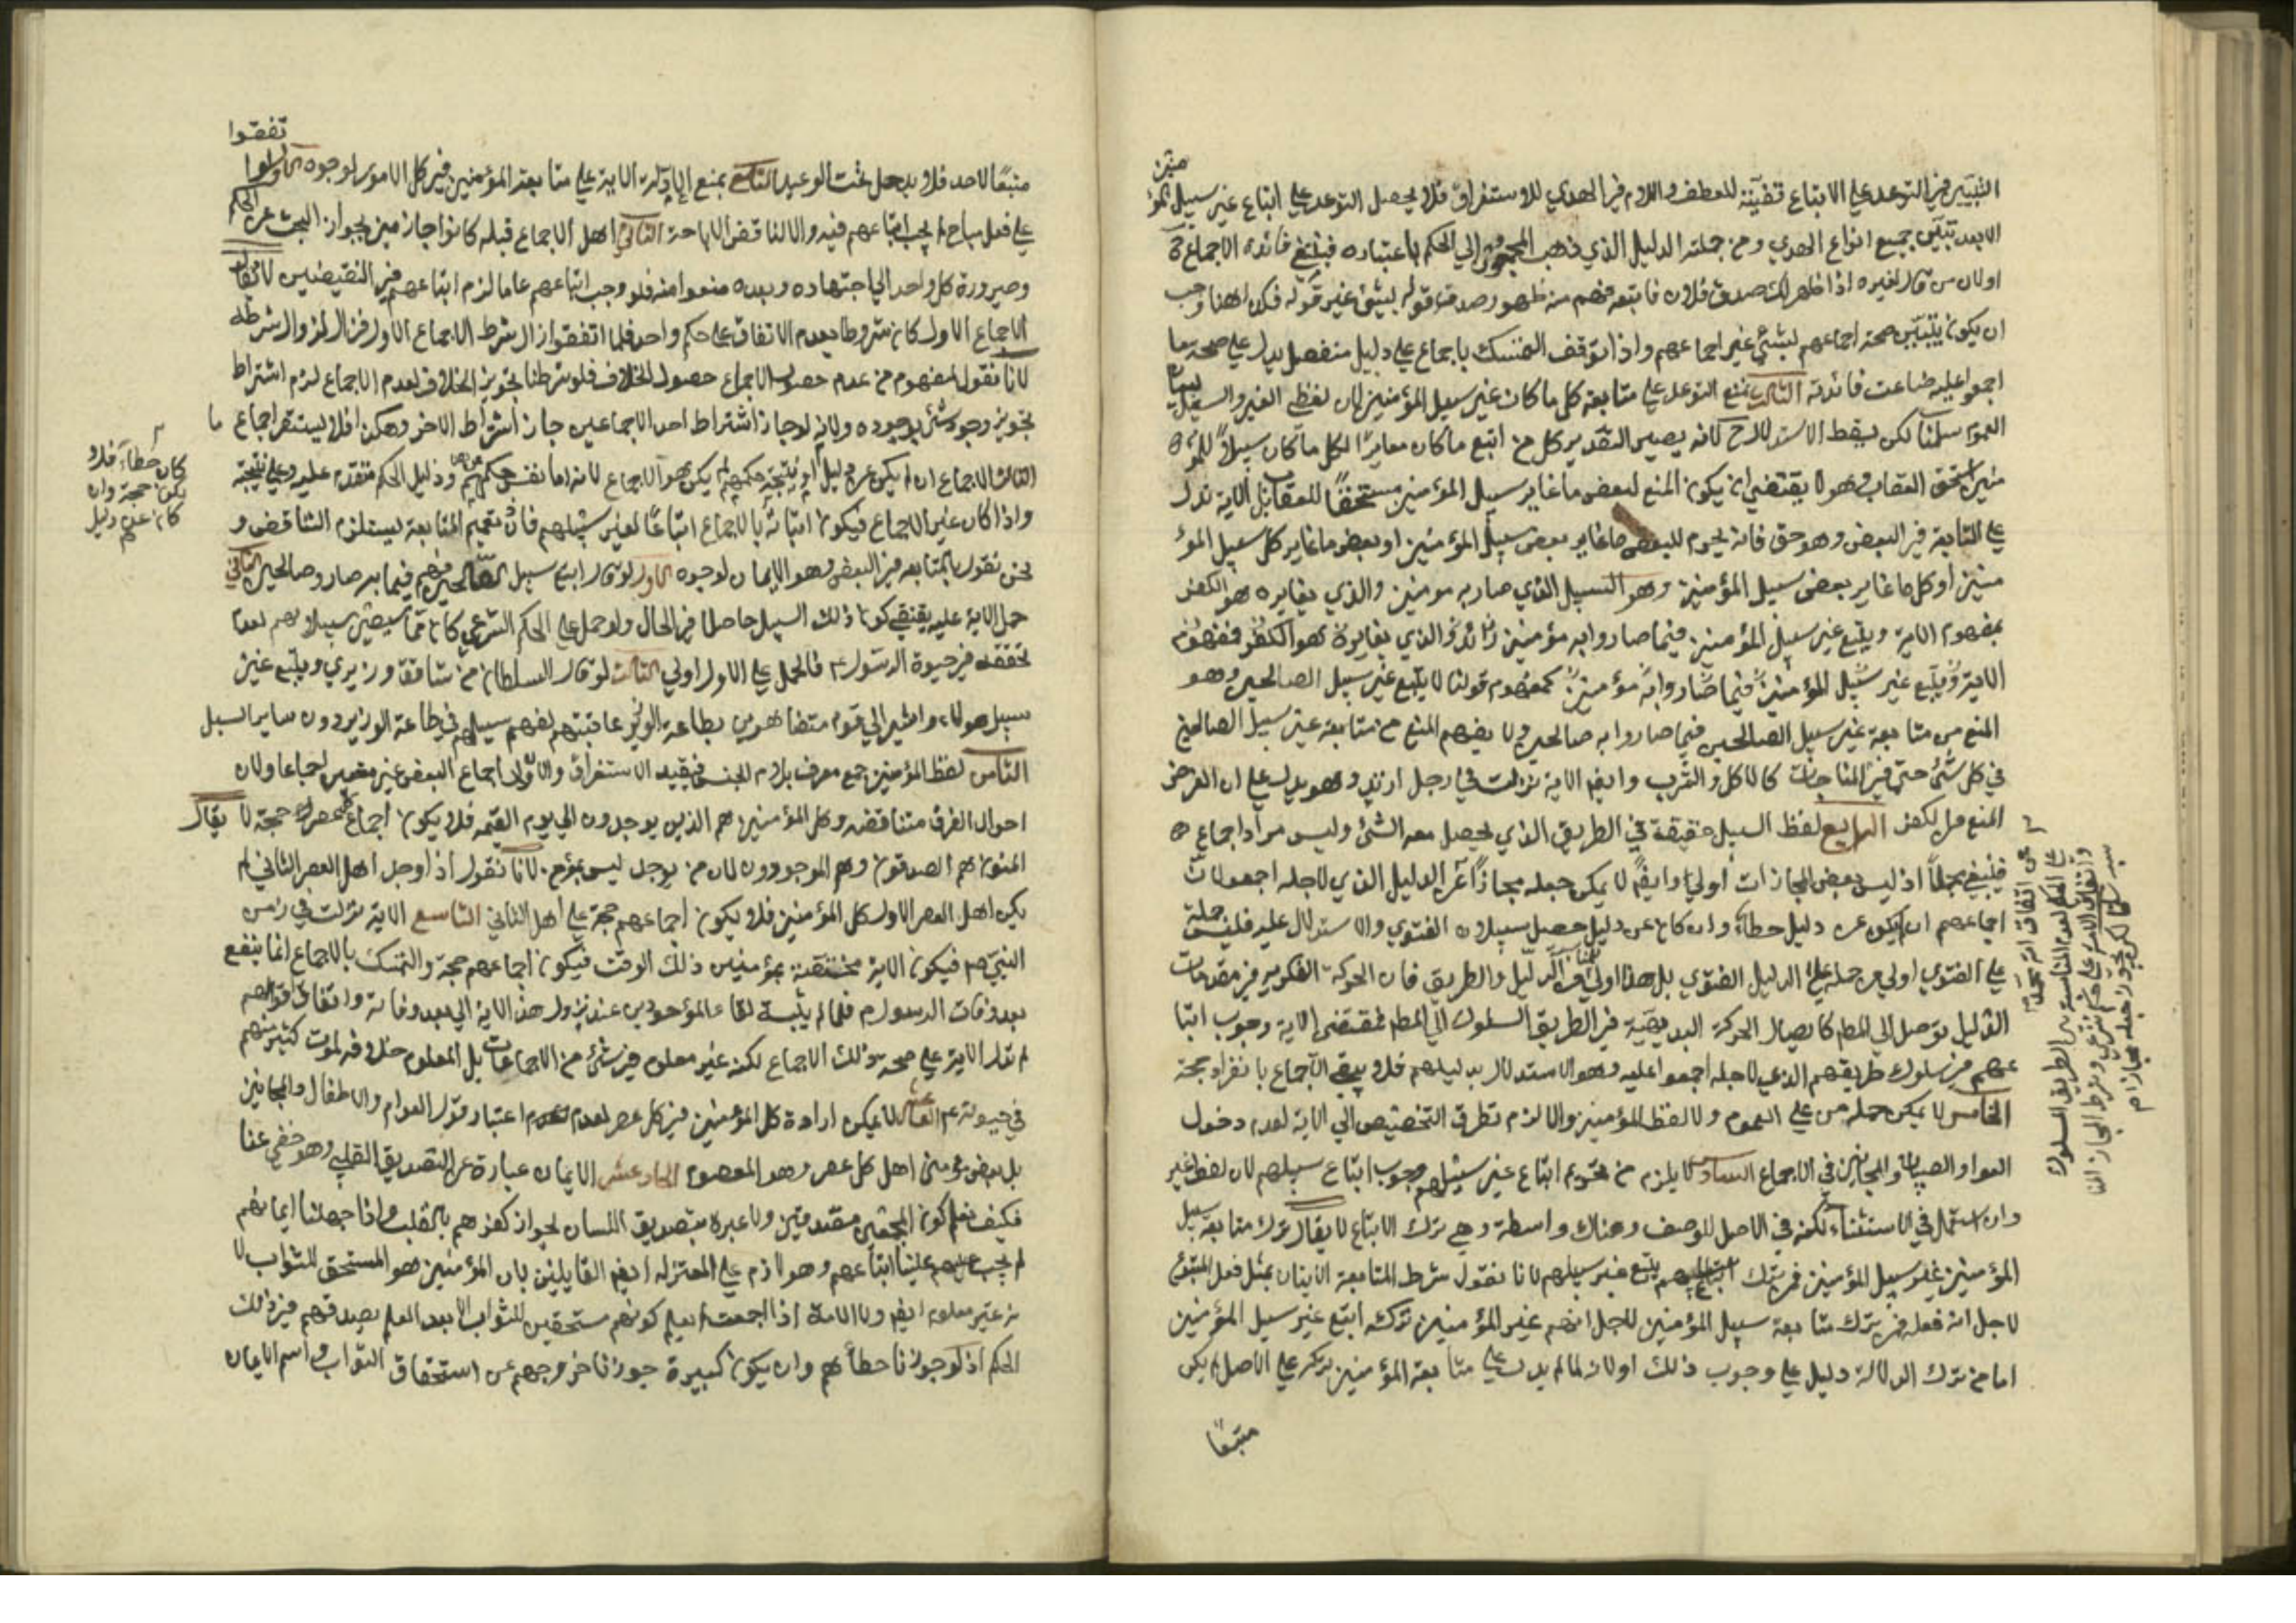 التبيين في التوعد على الاتباع قضيّة للعطف واللام في الهدي للاستغراق فلا يحصل التوعد على اتباع غير سبيل المؤ
منين
الا بعد تبيّن جميع انواع الهدي ومن جملته الدليل الذي ذهب المجمعون الي الحكم باعتباره فينبغي فائدة الاجماع
اولان من قال لغيره اذا ظهر لك صدق فلان فاتبعه فهم منه ظهور صدق قوله بشئ غير قوله فكذا هنا وجب
ان يكون تبيّن صحة اجماعهم بشئ غير اجماعهم واذا توقف التمسك باجماع على دليل منفصل يدل على صحة ما
اجمعوا عليه ضاعت فائدته الثالث نمنع التوعد على متابعة كل ما كان غير سبيل المؤمنين لان لفظي الغير والسبيل ليسا
للعموم سلمنا لكن يسقط الاستدلال لانه يصير التقدير كل من اتبع ما كان مغايرًا لكل ما كان سبيلاً للمؤ
منين استحق العقاب وهو لا يقتضي ان يكون المتبع لبعض ما غاير سبيل المؤمنين مستحقًا للعقاب بل الاية تدل
على المتابعة في البعض وهو حق فانه يحرم للبعض ما غاير بعض سبيل المؤمنين او بعض ما غاير كل سبيل المؤ
منين او كل ما غاير بعض سبيل المؤمنين وهو السبيل الذي صار به مومنين والذي يغايره هو الكفر
بمفهوم الاية ويتبع غير سبيل المؤمنين فيما صاروا به مؤمنين والذي يغايره هو الكفر فمفهوم
الاية ويتبع غير سبيل المؤمنين فيما صاروا به مؤمنين كمفهوم قولنا لا يتبع غير سبيل الصالحين وهو
المنع من متابعة غير سبيل الصالحين فيما صاروا به صالحين ولا يفهم المنع من متابعة غير سبيل الصالحين
في كل شئ حتى في المباحات كالاكل والشرب وايضا الاية نزلت في رجل ارتد وهو يدل على ان الغرض
المنع من الكفر الرابع لفظ السبيل حقيقة في الطريق الذي يحصل معه الشئ وليس مرادا اجماعا
فيبقى مجملاً اذ ليس بعض المجازات أولي وايضًا لا يمكن جعله مجازًا عن الدليل الذي لاجله اجمعوا لان
اجماعهم ان لم يكن عن دليل خطاء وان كان عن دليل حصل سبيلان الفتوي والاستدلال عليه فليس حمله
على الفتوي اولي من حمله على الدليل الفتوي بل هذا اولي لمناسبة الدليل والطريق فان الحركة الفكرية في مقدمات
الدليل توصل الي المط كايصال الحركة البدنية في الطريق المسلوك الي المط فمقتضى الاية وجوب اتبا
عهم في سلوك طريقهم الذي لاجله اجمعوا عليه وهو الاستدلال بدليلهم فلا يبقى الاجماع بانفراده حجة
الخامس لا يمكن حمله من على العموم ولا لفظ المؤمنين والا لزم تطرق التخصيص الي الاية لعدم دخول
العوام والصبيان والمجانين في الاجماع السادس لا يلزم من تحريم اتباع غير سبيلهم وجوب اتباع سبيلهم لان لفظ غير
وان استعمل في الاستثناء لكنه في الاصل للوصف وهناك واسطة وهي ترك الاتباع لا يقال ترك متابعة سبيل
المؤمنين غير سبيل المؤمنين فمن يترك اتباع سبيلهم يتبع غير سبيلهم لانا نقول شرط المتابعة الاتيان بمثل فعل المتبوع
لاجل انه فعله فمن يترك متابعة سبيل المؤمنين لاجل انهم غير المؤمنين تركه اتبع غير سبيل المؤمنين
اما من ترك الدلالة دليل على وجوب ذلك اولان لما لم يدل على متابعة المؤمنين تركه على الاصل لم يكن
متبعًا
تفقوا
متبعًا لاحد فلا يدخل تحت الوعيد السابع نمنع دلالة الاية على متابعة المؤمنين في كل الامور لوجوه الاول لو ا
على فعل مباح لم يجب اتباعهم فيه والا لناقض الاباحة الثاني اهل الاجماع قبله كانوا جازمين بجواز البحث عن الحكم
وصيرورة كل واحد الي اجتهاده وبعده منعوا منه فلو وجب اتباعهم عاما لزم اتباعهم في النقيضين لا يقال
الاجماع الاول كان مشروطا بعدم الاتفاق على حكم واحد فلما اتفقوا زال شرط الاجماع الاول فزال لزوال شرطه
لانا نقول المفهوم من عدم حصول الاجماع حصول الخلاف فلو شرطنا تجويز الخلاف بعدم الاجماع لزم اشتراط
تجويز وجود شئ بوجوده ولانه لو جاز اشتراط احد الاجماعين جاز اشتراط الاخر وهكذا فلا يستقر اجماع ما
الثالث الاجماع ان لم يكن عن دليل
كان خطاء فلا
يكون حجة وان
كان عن دليل
واذا كان غير الاجماع فيكون اثباته بالاجماع اتباعًا لغير سبيلهم فاذن تعميم المتابعة يستلزم التناقض و
نحن نقول بالمتابعة في البعض وهو الايمان لوجوه الاول لو قال اتبع سبيل الصالحين فهم فيما به صاروا صالحين الثاني
حمل الاية عليه يقتضي كون ذلك السبيل حاصلا في الحال ولو حمل على الحكم الشرعي كان مما سيصير سبيلا لهم لعدم
تحققه في حيوة الرسول م فالحمل على الاول اولي الثالث لو قال السلطان من شاقق وزيري ويتبع غير
سبيل هولاء واشير الي قوم متظاهرين بطاعة الوزير عاقبتهم لفهم سبيلهم في طاعة الوزير دون ساير السبل
الثامن لفظ المؤمنين جمع معرف بلام الجنس فيفيد الاستغراق والا ولي اجماع البعض غير معتبر اجماعا ولان
احوال الفرق متناقضة وكل المؤمنين هم الذين يوجدون الي يوم القيمة فلا يكون اجماع كل عصر حجة لا يقال
المؤمنون هم المصدقون وهم الموجودون لان من يوجد ليس بمؤمن لانا نقول اذا وجد اهل العصر الثاني لم
يكن اهل العصر الاول كل المؤمنين فلا يكون اجماعهم حجة على اهل الثاني التاسع الاية نزلت في زمن
النبي م فيكون الاية مختصة بمؤمنين ذلك الوقت فيكون اجماعهم حجة والتمسك بالاجماع انما ينفع
بعد وفات الرسول م فلما لم يثبت بقاء الموجودين عند نزول هذه الاية الي بعد وفاته واتفاق قولهم
لم تدل الاية على صحة ذلك الاجماع لكنه غير معلوم في شئ من الاجماعات بل المعلوم خلافه لموت كثير منهم
في حيوته م العاشر لا يمكن ارادة كل المؤمنين في كل عصر لعدم اعتبار قول العوام والاطفال والمجانين
بل بعض مؤمني اهل كل عصر وهو المعصوم الحادي عشر الايمان عبارة عن التصديق القلبي وهو خفي عنا
فكيف نعلم كون المجمعين مصدقين ولا عبرة بتصديق اللسان لجواز كفرهم بالقلب واذا جهلنا ايمانهم
لم يجب علينا اتباعهم وهو لازم على المعتزله ايضا القايلين بان المؤمنين هو المستحق للثواب لا
نه غير معلوم ايضا ولا الامة اذا اجمعت لم يعلم كونهم مستحقين للثواب الا بعد العلم بصدقهم في ذلك
الحكم اذ لو جوزنا خطأهم وان يكون كبيرة جوزنا خروجهم عن استحقاق الثواب واسم الايمان